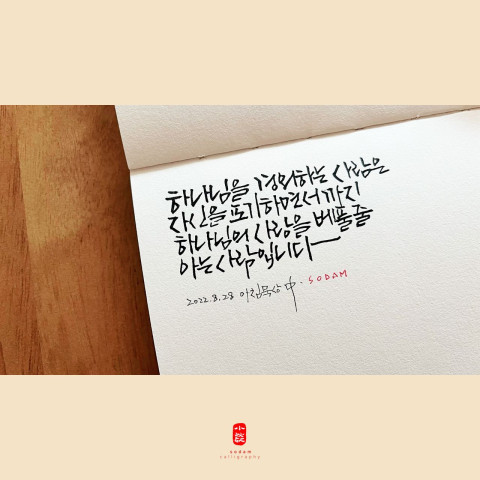 하나님을 경외하는 사람은
자신을 포기하면서 까지
하나님의 사랑을 베풀줄
아는 사람입니다
2022.8.28 아침묵상 中. SODAM
sodam
calligraphy